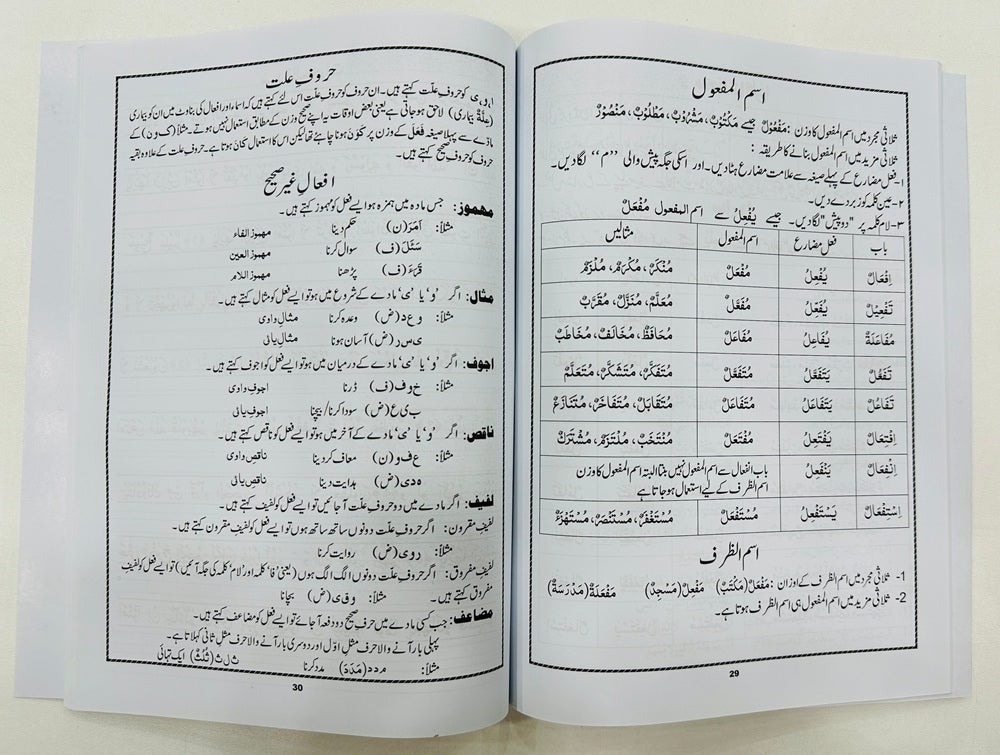 اسم المفعول
ثلاثی مجرد میں اسم المفعول کا وزن : مَفْعُوْلٌ جیسے مَكْتُوْبٌ، مَشْرُوْبٌ، مَطْلُوْبٌ، مَنْصُوْرٌ
ثلاثی مزید میں اسم المفعول بنانے کا طریقہ :
۱-فعل مضارع کے پہلے صیغہ سے علامت مضارع ہٹا دیں۔ اور اسکی جگہ پیش والی ’’م‘‘ لگا دیں۔
۲-عین کلمہ کو زبر دے دیں۔
۳-لام کلمہ پر "دو پیش" لگا دیں۔ جیسے يُفْعِلُ سے اسم المفعول مُفْعَلٌ
باب فعل مضارع اسم المفعول مثالیں
اِفْعَالٌ يُفْعِلُ مُفْعَلٌ مُنْكَرٌ، مُكْرَمٌ، مُلْزَمٌ
تَفْعِيْلٌ يُفَعِّلُ مُفَعَّلٌ مُعَلَّمٌ، مُنَزَّلٌ، مُقَرَّبٌ
مُفَاعَلَةٌ يُفَاعِلُ مُفَاعَلٌ مُحَافَظٌ، مُخَالَفٌ، مُخَاطَبٌ
تَفَعُّلٌ يَتَفَعَّلُ مُتَفَعَّلٌ مُتَفَكَّرٌ، مُتَشَكَّرٌ، مُتَعَلَّمٌ
تَفَاعُلٌ يَتَفَاعَلُ مُتَفَاعَلٌ مُتَقَابَلٌ، مُتَفَاخَرٌ، مُتَنَازَعٌ
اِفْتِعَالٌ يَفْتَعِلُ مُفْتَعَلٌ مُنْتَخَبٌ، مُلْتَزَمٌ، مُشْتَرَكٌ
اِنْفِعَالٌ يَنْفَعِلُ باب انفعال سے اسم المفعول نہیں بنتا البتہ اسم المفعول کا وزن
اسم الظرف کے لیے استعمال ہو جاتا ہے
اِسْتِفْعَالٌ يَسْتَفْعِلُ مُسْتَفْعَلٌ مُسْتَغْفَرٌ، مُسْتَنْصَرٌ، مُسْتَهْزَءٌ
اسم الظرف
1- ثلاثی مجرد میں اسم الظرف کے اوزان : مَفْعَلٌ (مَكْتَبٌ) مَفْعِلٌ (مَسْجِدٌ) مَفْعَلَةٌ (مَدْرَسَةٌ)
2- ثلاثی مزید میں اسم المفعول ہی اسم الظرف ہوتا ہے۔
29
حروفِ علت
ا، و، ی کو حروفِ علّت کہتے ہیں۔ ان حروف کو حروفِ علّت اس لئے کہتے ہیں کہ اسماء اور افعال کی بناوٹ میں ان کو بیماری
(عِلَّةٌ بیماری) لاحق ہو جاتی ہے یعنی بعض اوقات یہ اپنے صحیح وزن کے مطابق استعمال نہیں ہوتے۔ مثلاً (ک و ن) کے
مادّے سے پہلا صیغہ فَعَلَ کے وزن پر كَوَنَ ہونا چاہئے تھا لیکن اس کا استعمال كَانَ ہوتا ہے۔ حروفِ علت کے علاوہ بقیہ
حروف کو حروفِ صحیح کہتے ہیں۔
افعالِ غیر صحیح
مهموز: جس مادہ میں ہمزہ ہو ایسے فعل کو مہموز کہتے ہیں۔
مثلاً: اَمَرَ (ن) حکم دینا مهموز الفاء
سَئَلَ (ف) سوال کرنا مهموز العین
قَرَءَ (ف) پڑھنا مهموز اللام
مثال: اگر ’و‘ یا ’ی‘ مادے کے شروع میں ہو تو ایسے فعل کو مثال کہتے ہیں۔
مثلاً: و ع د (ض) وعدہ کرنا مثالِ واوی
ی س ر (ض) آسان ہونا مثالِ یائی
اجوف: اگر ’و‘ یا ’ی‘ مادے کے درمیان میں ہو تو ایسے فعل کو اجوف کہتے ہیں۔
مثلاً: خ و ف (ف) ڈرنا اجوفِ واوی
ب ی ع (ض) سودا کرنا/بیچنا اجوفِ یائی
ناقص: اگر ’و‘ یا ’ی‘ مادے کے آخر میں ہو تو ایسے فعل کو ناقص کہتے ہیں۔
مثلاً: ع ف و (ن) معاف کر دینا ناقصِ واوی
ہ د ی (ض) ہدایت دینا ناقصِ یائی
لفیف: اگر مادے میں دو حروفِ علّت آ جائیں تو ایسے فعل کو لفیف کہتے ہیں۔
لفیفِ مقرون: اگر حروفِ علّت دونوں ساتھ ساتھ ہوں تو ایسے فعل کو لفیف مقرون کہتے ہیں۔
مثلاً: ر و ی (ض) روایت کرنا
لفیفِ مفروق: اگر حروفِ علّت دونوں الگ الگ ہوں (یعنی ’فا‘ کلمہ اور ’لام‘ کلمہ کی جگہ آئیں) تو ایسے فعل کو لفیفِ
مفروق کہتے ہیں۔ مثلاً: و ق ی (ض) بچانا
مضاعف: جب کسی مادے میں حرفِ صحیح دو دفعہ آ جائے تو ایسے فعل کو مضاعف کہتے ہیں۔
پہلی بار آنے والا حرف مثلِ اوّل اور دوسری بار آنے والا حرف مثلِ ثانی کہلاتا ہے۔
مثلاً: م د د (مَدَدَ) مدد کرنا ث ل ث (ثُلُثٌ) ایک تہائی
30